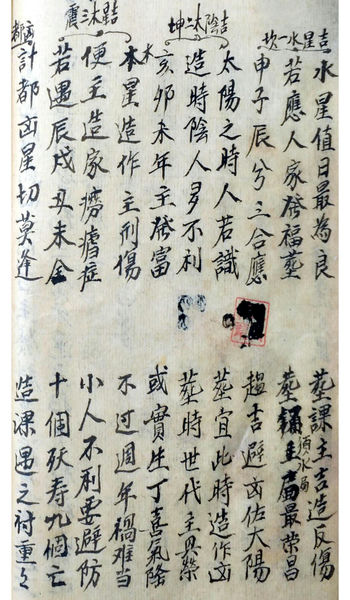 吉星水一坎
水星值日最為良 葬課主吉造反傷
若應人家發福葬 葬主局最榮昌
申子辰兮三合應 趨吉避凶佐大陽
吉陰水二坤
太陽之時人若識 葬宜此時造作凶
造時陰人多不利 葬時世代主興榮
亥卯未年主發富 或實生丁喜氣隆
吉木三震
木
本星造作主刑傷 不过週年禍难当
便主造家癆症 小人不利要避防
若遇辰戌丑未金 十個殀寿九個亡
凶都
計都凶星切莫逢 造課遇之重々